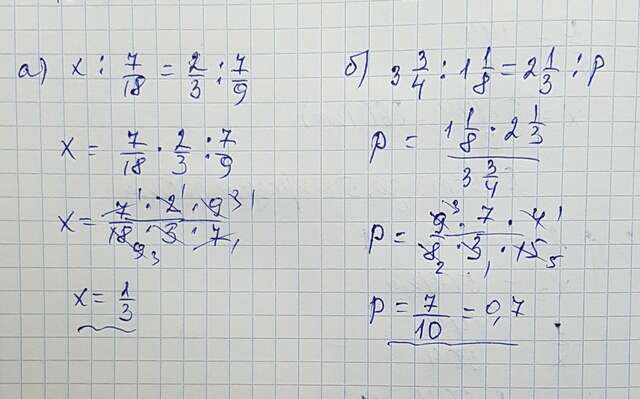 а) x : 7/18 = 2/3 : 7/9
x = 7/18 · 2/3 : 7/9
x = 7 · 2 · 9 / 18 · 3 · 7
x = 1/3
б) 3 3/4 : 1 1/8 = 2 1/3 : p
p = 1 1/8 · 2 1/3 / 3 3/4
p = 9 · 7 · 4 / 8 · 3 · 15
p = 7/10 = 0,7